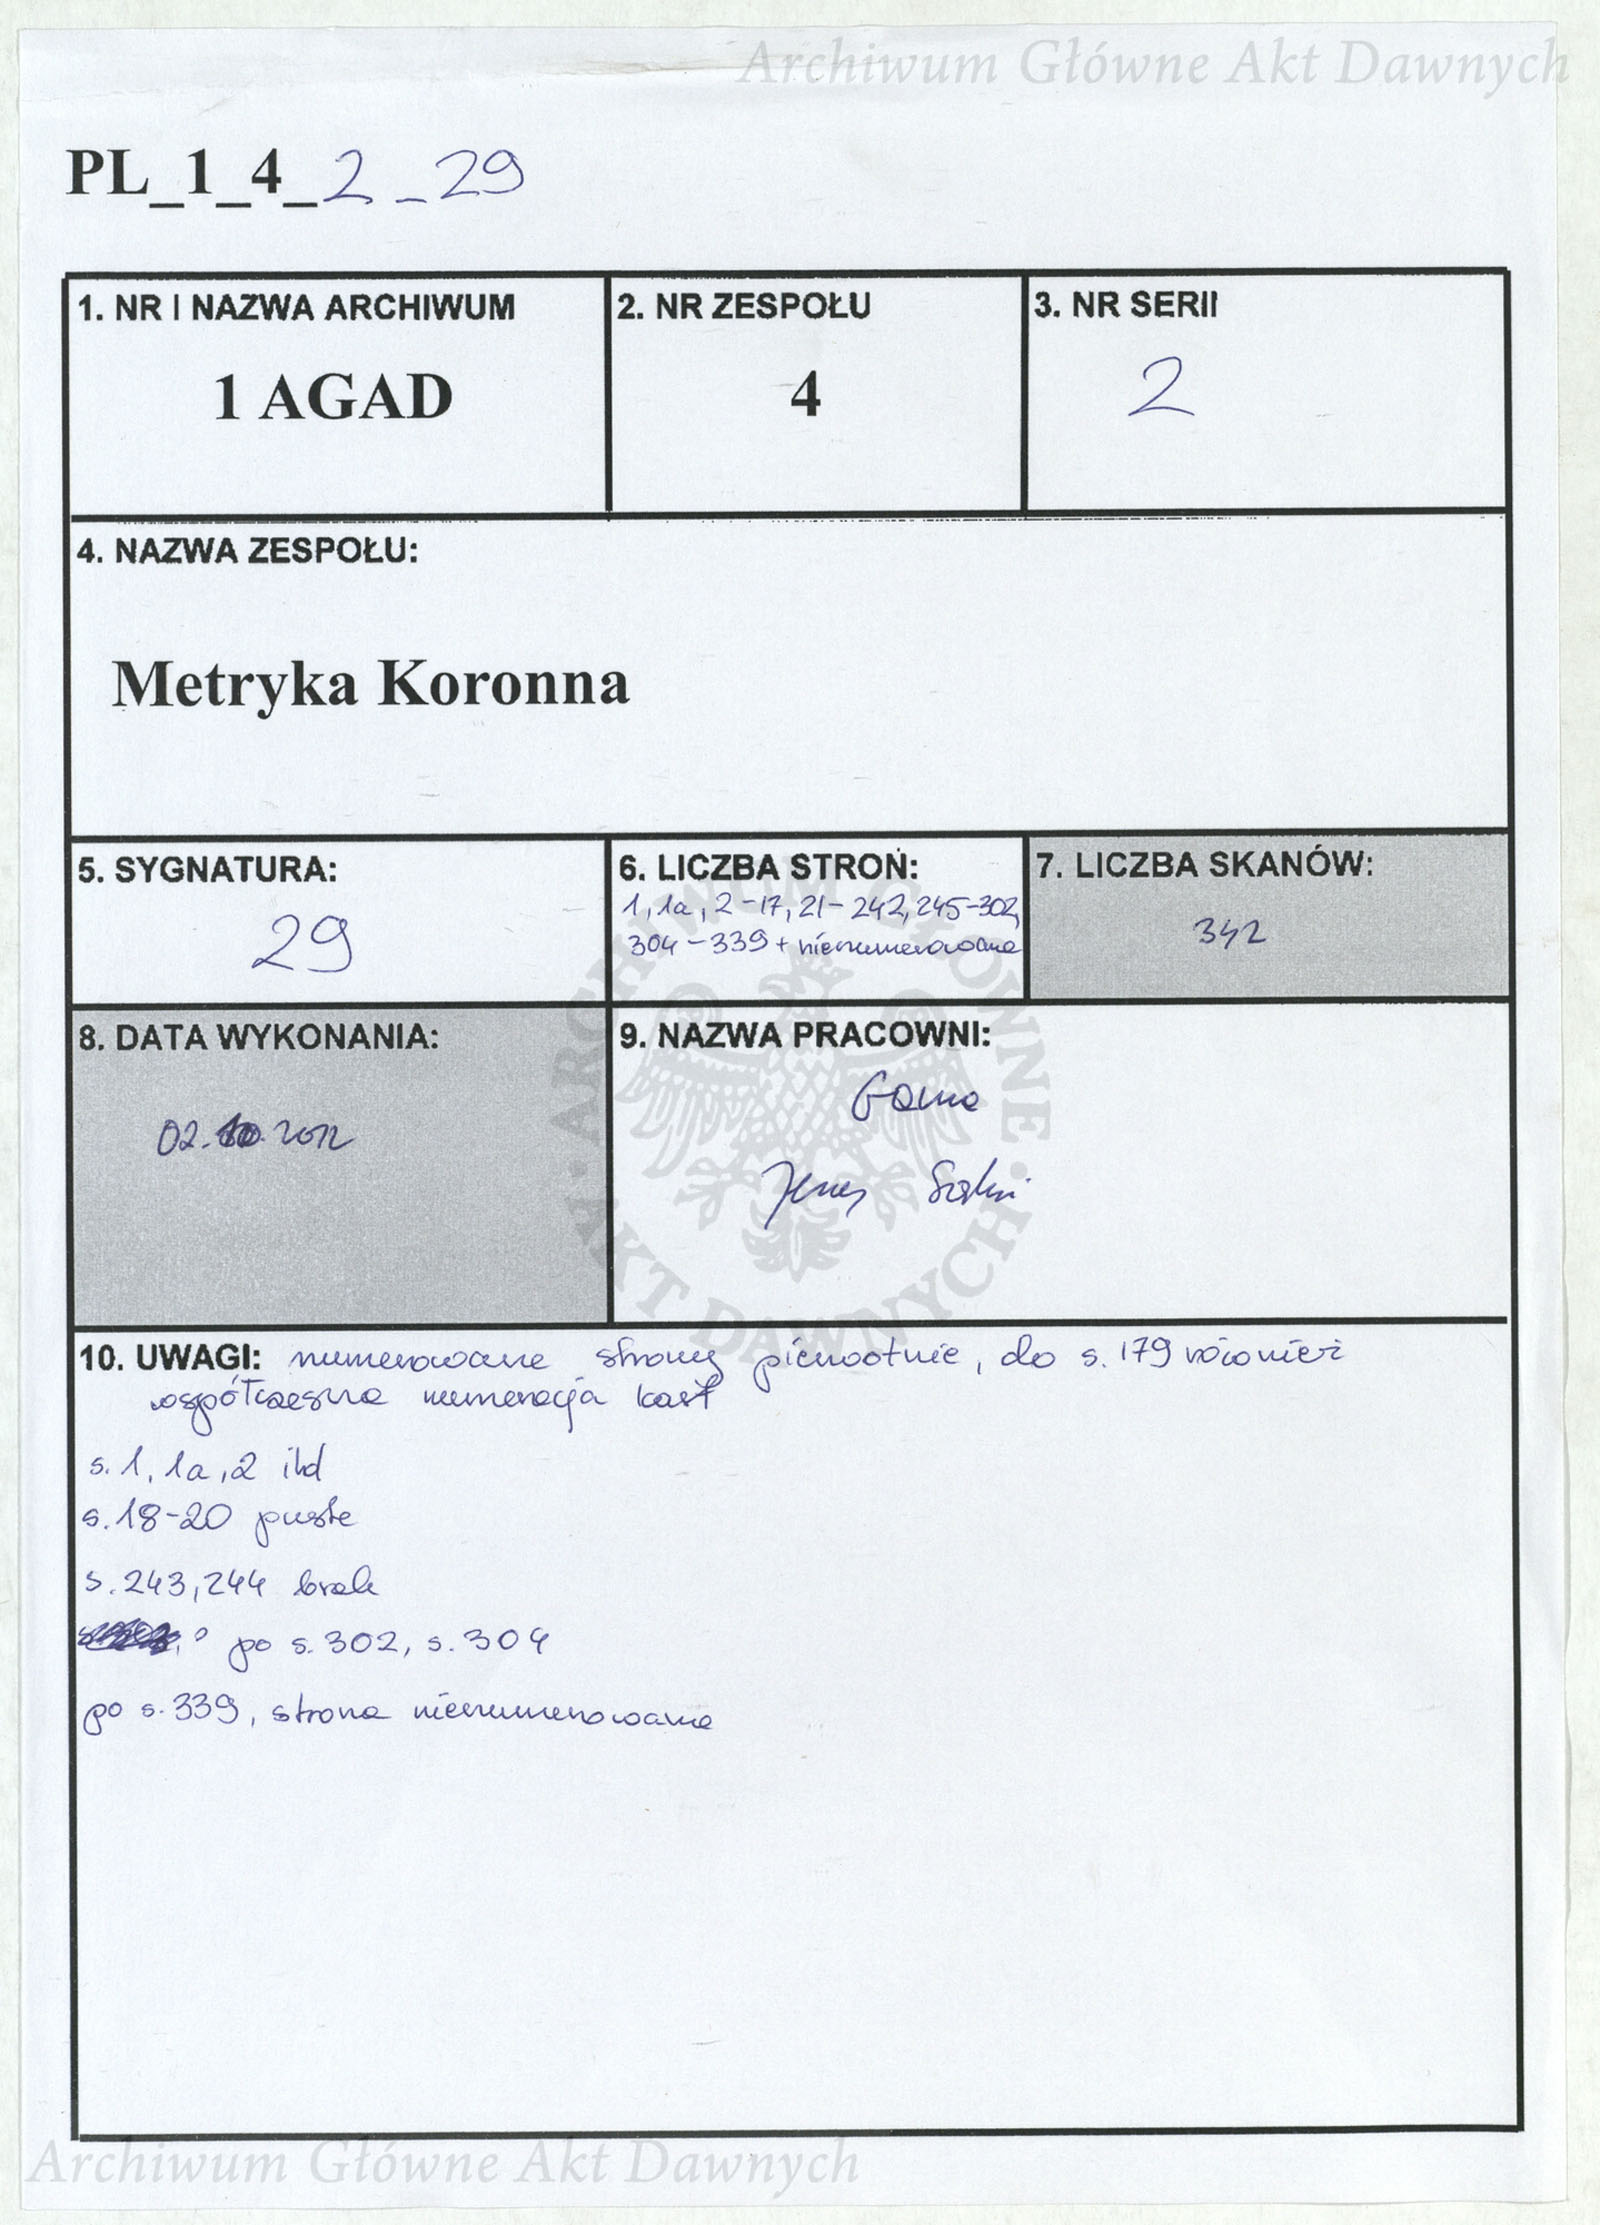 Archiwum Główne Akt Dawnych
PL_1_4_2_29
1. NR I NAZWA ARCHIWUM
1 AGAD
2. NR ZESPOŁU
4
3. NR SERII
2
4. NAZWA ZESPOŁU:
Metryka Koronna
5. SYGNATURA:
29
6. LICZBA STRON:
1, 1a, 2-17, 21-242, 245-302,
304-339 + nienumerowana
7. LICZBA SKANÓW:
342
8. DATA WYKONANIA:
02.10.2012
9. NAZWA PRACOWNI:
10. UWAGI: numerowane strony pierwotnie, do s. 179 również
współczesna numeracja kart
s. 1, 1a, 2 itd
s. 18-20 puste
s. 243, 244 brak
po s. 302, s. 304
po s. 339, strona nienumerowana
ARCHIWUM GŁÓWNE · AKT DAWNYCH ·
Archiwum Główne Akt Dawnych